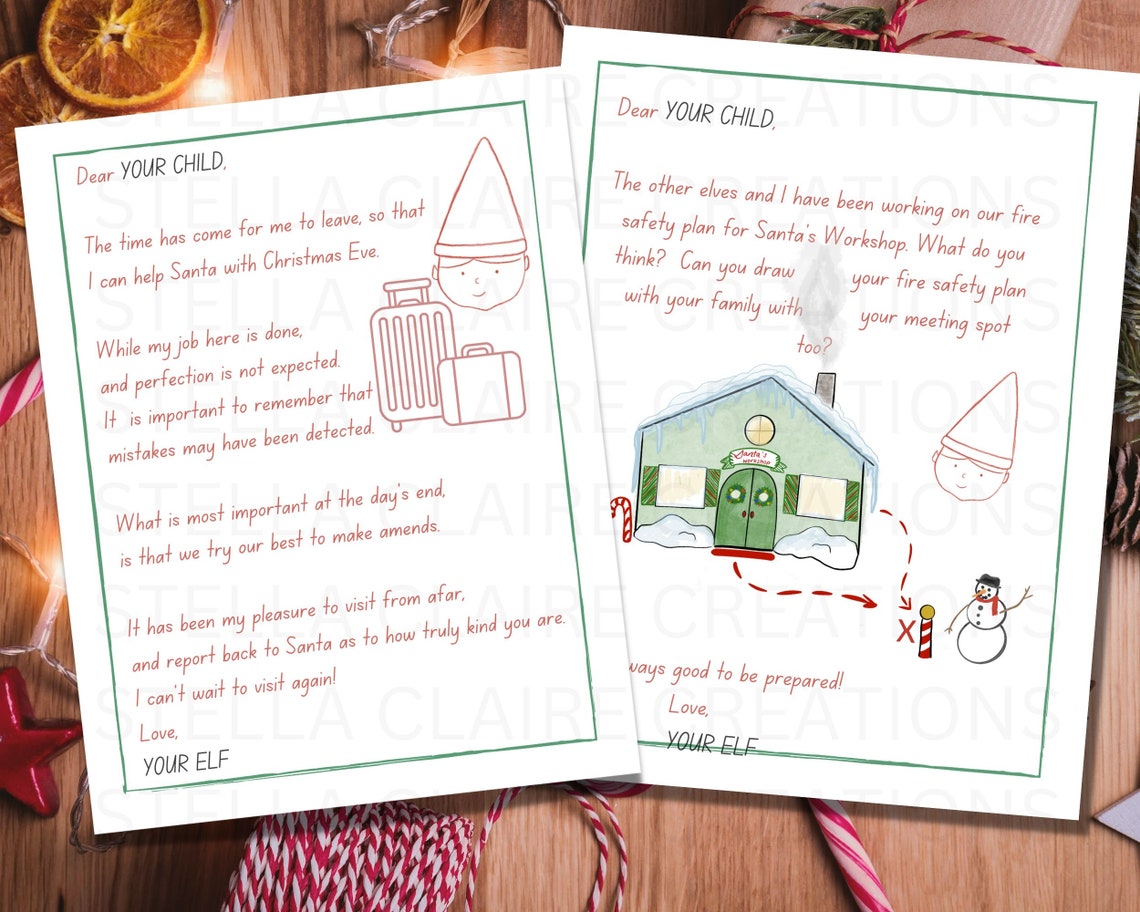 Dear YOUR CHILD,
The time has come for me to leave, so that
I can help Santa with Christmas Eve.
While my job here is done,
and perfection is not expected.
It is important to remember that
mistakes may have been detected.
What is most important at the day's end,
is that we try our best to make amends.
It has been my pleasure to visit from afar,
and report back to Santa as to how truly kind you are.
I can't wait to visit again!
Love,
YOUR ELF
Dear YOUR CHILD,
The other elves and I have been working on our fire
safety plan for Santa's Workshop. What do you
think? Can you draw your fire safety plan
with your family with your meeting spot
too?
Santa's
WORKSHOP
X
ways good to be prepared!
Love,
YOUR ELF
STELLA CLAIRE CREATIONS
STELLA CLAIRE CREATIONS
STELLA CLAIRE CREATIONS
STELLA CLAIRE CREATIONS
STELLA CLAIRE CREATIONS
STELLA CLAIRE CREATIONS
STELLA CLAIRE CREATIONS
STELLA CLAIRE CREATIONS